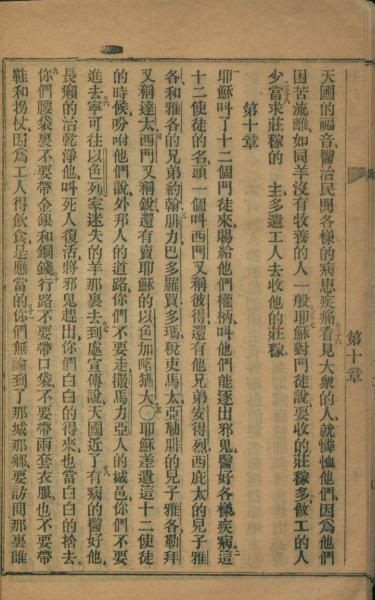 第十章
天國的福音、醫治民間各樣的病患疾痛、看見大衆的人、就憐恤他們、因爲他們
困苦流離、如同羊沒有牧養的人一般、耶穌對門徒說、要收的莊稼多、做工的人
少、當求莊稼的 主、多遣工人去收他的莊稼、
第十章
耶穌叫了十二個門徒來、賜給他們權柄、叫他們能逐出邪鬼、醫好各樣疾病、這
十二使徒的名、頭一個叫西門、又稱彼得、還有他兄弟安得烈、西庇太的兒子雅
各、和雅各的兄弟約翰、腓力、巴多羅買、多瑪、稅吏馬太、亞勒腓的兒子雅各、勒拜
又稱達太、西門又稱銳、還有賣耶穌的以色加略猶大、〇耶穌差遣這十二使徒
的時候、吩咐他們說、外邦人的道路、你們不要走、撒馬力亞人的城邑、你們不要
進去、寧可往以色列家迷失的羊那裏去、到處宣傳說、天國近了、有病的醫好他、
長癩的治乾淨他、叫死人復活、將邪鬼趕出、你們白白的得來、也當白白的捨去、
你們腰袋裏不要帶金銀和銅錢、行路不要帶口袋、不要帶兩套衣服、也不要帶
鞋和柺杖、因爲工人得飲食是應當的、你們無論到了那城那鄉、要訪問那裏誰